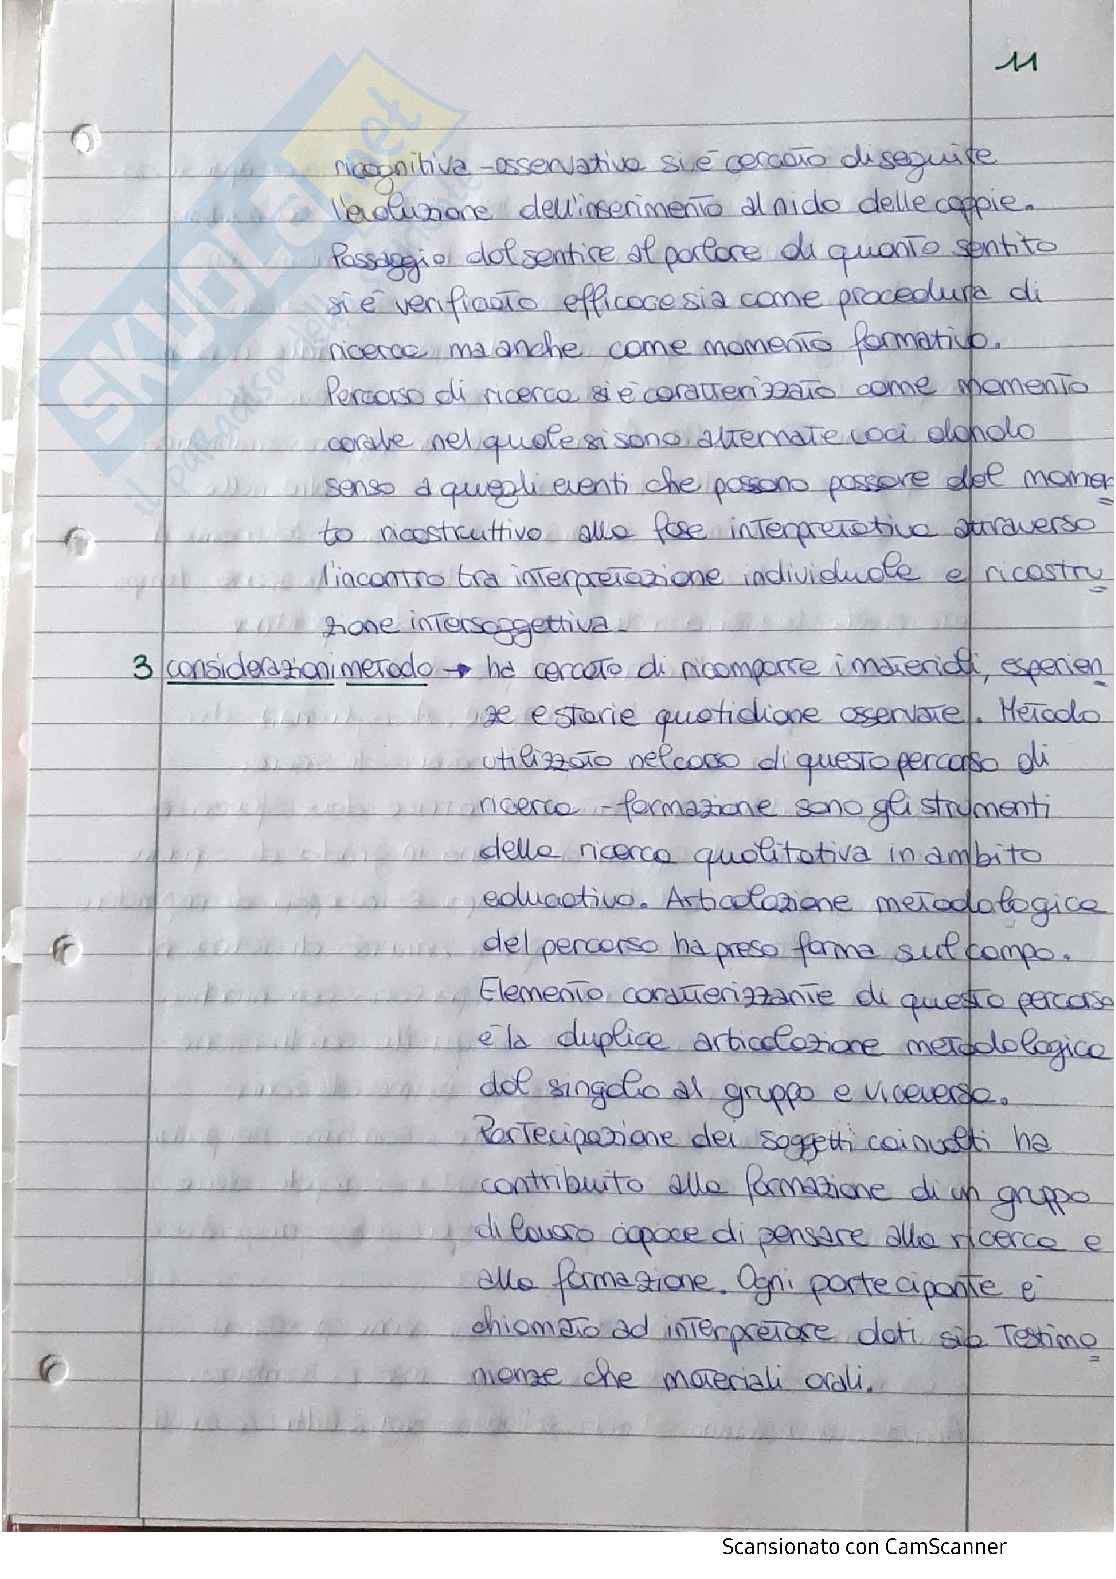 11
ricognitiva-osservativa si è cercato di seguire
l'evoluzione dell'inserimento al nido delle coppie.
Passaggio dal sentire al parlare di quanto sentito
si è verificato efficace sia come procedura di
ricerca ma anche come momento formativo.
Percorso di ricerca si è caratterizzato come momento
corale nel quale si sono alternate voci dando
senso a quegli eventi che possono passare dal momen
to ricostruttivo alla fase interpretativa attraverso
l'incontro tra interpretazione individuale e ricostru
zione intersoggettiva.
3 considerazioni metodo → ha cercato di ricomporre i materiali, esperien
ze e storie quotidiane osservate. Metodo
utilizzato nel corso di questo percorso di
ricerca-formazione sono gli strumenti
della ricerca qualitativa in ambito
educativo. Articolazione metodologica
del percorso ha preso forma sul campo.
Elemento caratterizzante di questo percorso
è la duplice articolazione metodologica
dal singolo al gruppo e viceversa.
Partecipazione dei soggetti coinvolti ha
contribuito alla formazione di un gruppo
di lavoro capace di pensare alla ricerca e
alla formazione. Ogni partecipante è
chiamato ad interpretare dati sia testimo
nianze che materiali orali.
SKUOLA.net
il paradiso dello studente
Scansionato con CamScanner